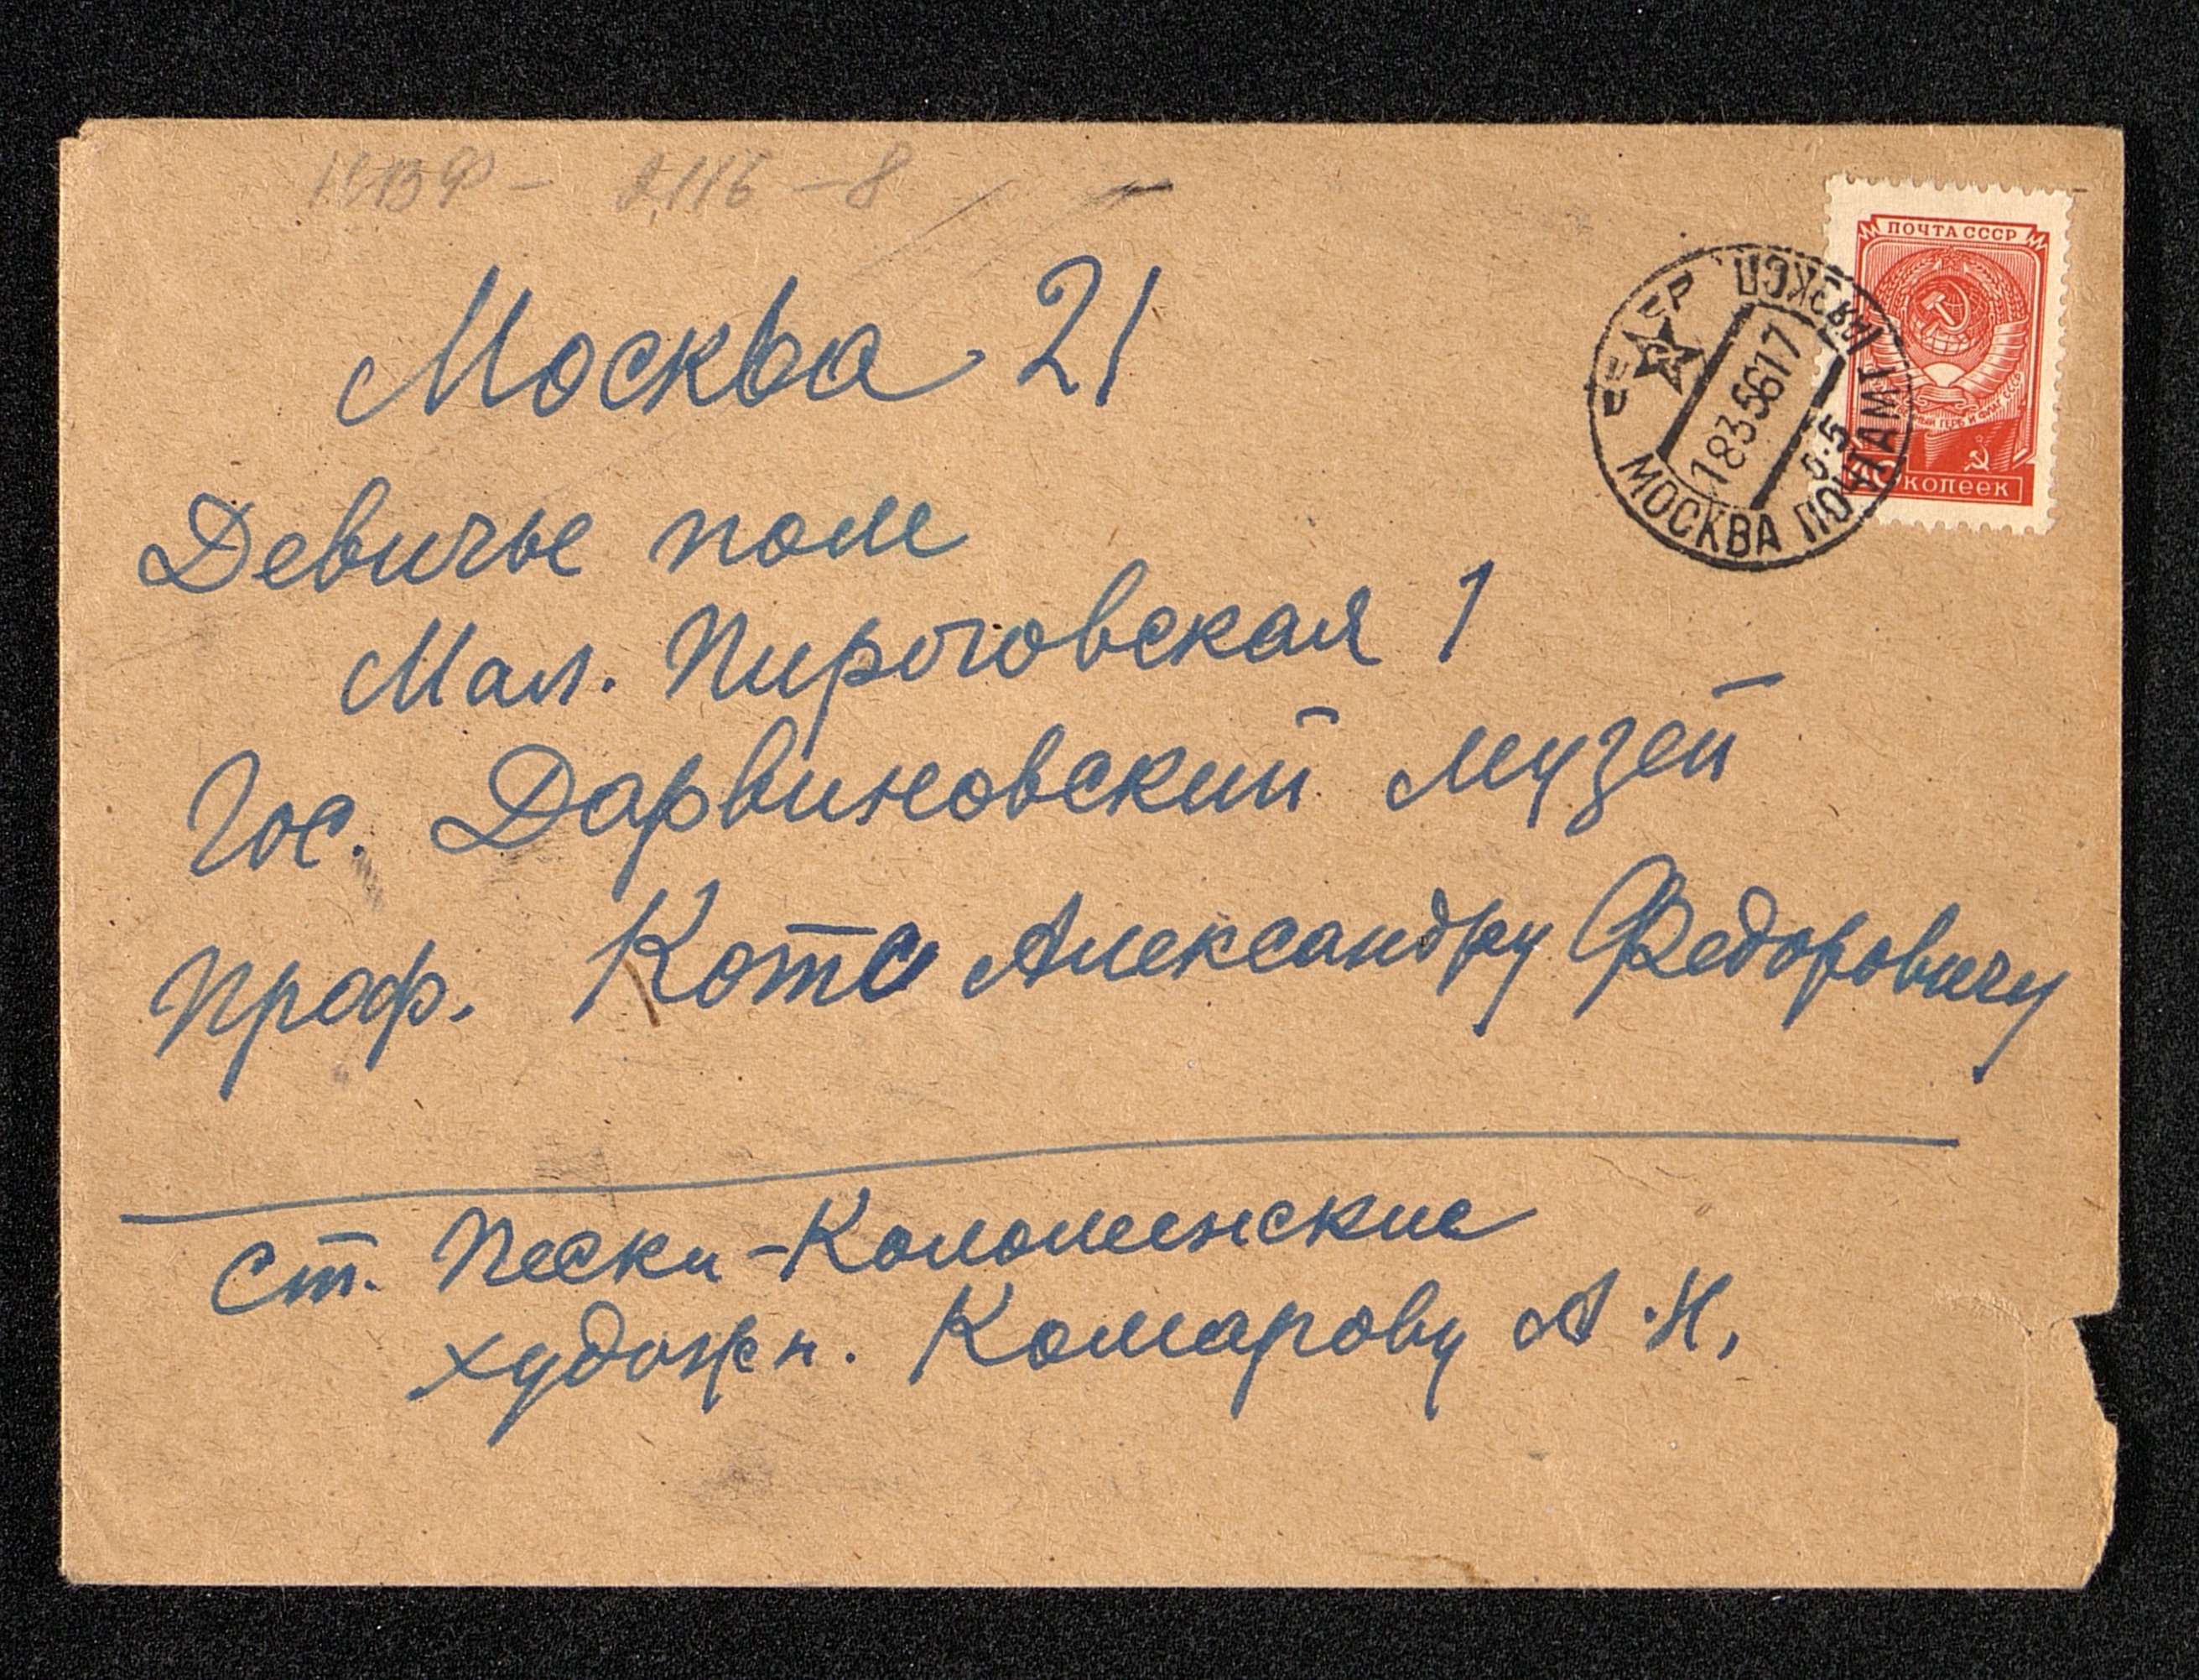 Москва 21
Девичье поле
Мал. Пироговская 1
Гос. Дарвиновский музей
Проф. Котс Александру Федоровичу
ст. Пески-Коломенские
художн. Комарову А.Н.
ПОЧТА СССР
копеек
МОСКВА ПОЧТАМТ
18 3 56 17